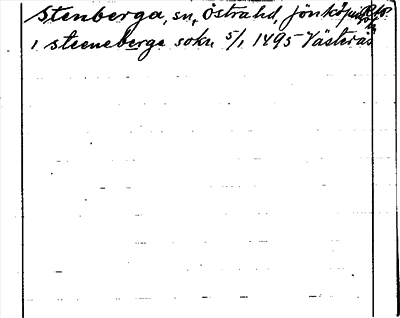 Stenberga, sn, Östra hd, Jönköpings
i steeneberga sokn 5/1 1495 Västerås